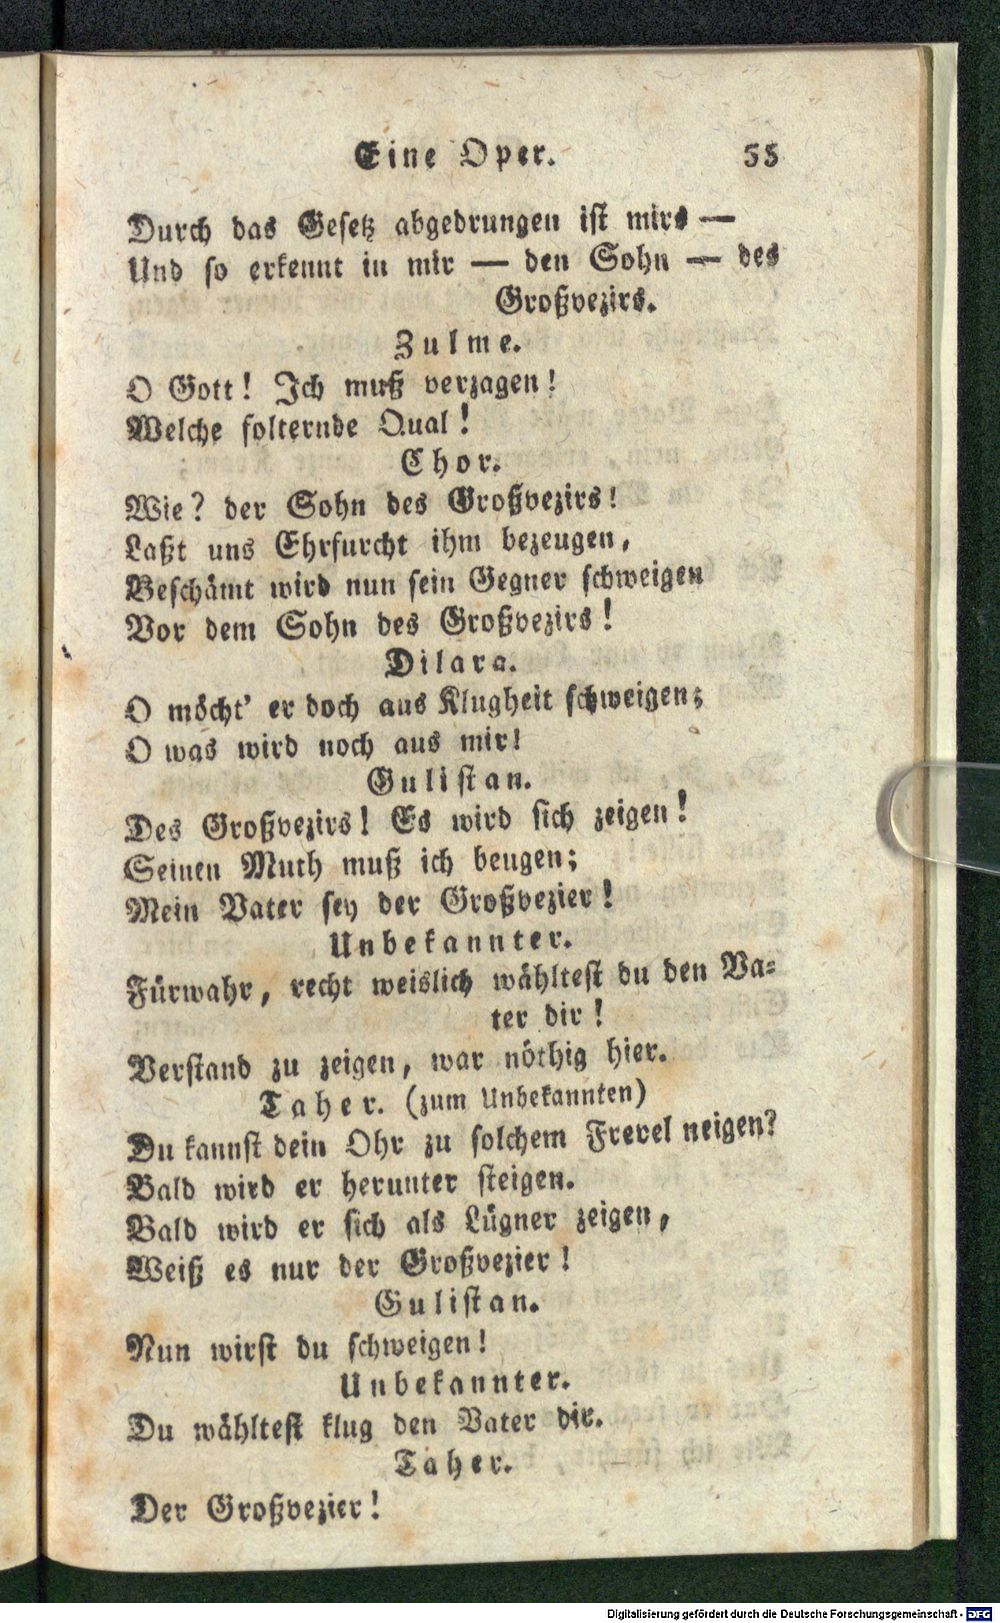 Eine Oper. 55
Durch das Gesetz abgedrungen ist mirs —
Und so erkennt in mir — den Sohn — des
Großvezirs.
Zulme.
O Gott! Ich muß verzagen!
Welche folternde Qual!
Chor.
Wie? der Sohn des Großvezirs!
Laßt uns Ehrfurcht ihm bezeugen,
Beschämt wird nun sein Gegner schweigen
Vor dem Sohn des Großvezirs!
Dilara.
O möcht' er doch aus Klugheit schweigen;
O was wird noch aus mir!
Gulistan.
Des Großvezirs! Es wird sich zeigen!
Seinen Muth muß ich beugen;
Mein Vater sey der Großvezier!
Unbekannter.
Fürwahr, recht weislich wähltest du den Va-
ter dir!
Verstand zu zeigen, war nöthig hier.
Taher. (zum Unbekannten)
Du kannst dein Ohr zu solchem Frevel neigen?
Bald wird er herunter steigen.
Bald wird er sich als Lügner zeigen,
Weiß es nur der Großvezier!
Gulistan.
Nun wirst du schweigen!
Unbekannter.
Du wähltest klug den Vater dir.
Taher.
Der Großvezier!
Digitalisierung gefördert durch die Deutsche Forschungsgemeinschaft - DFG